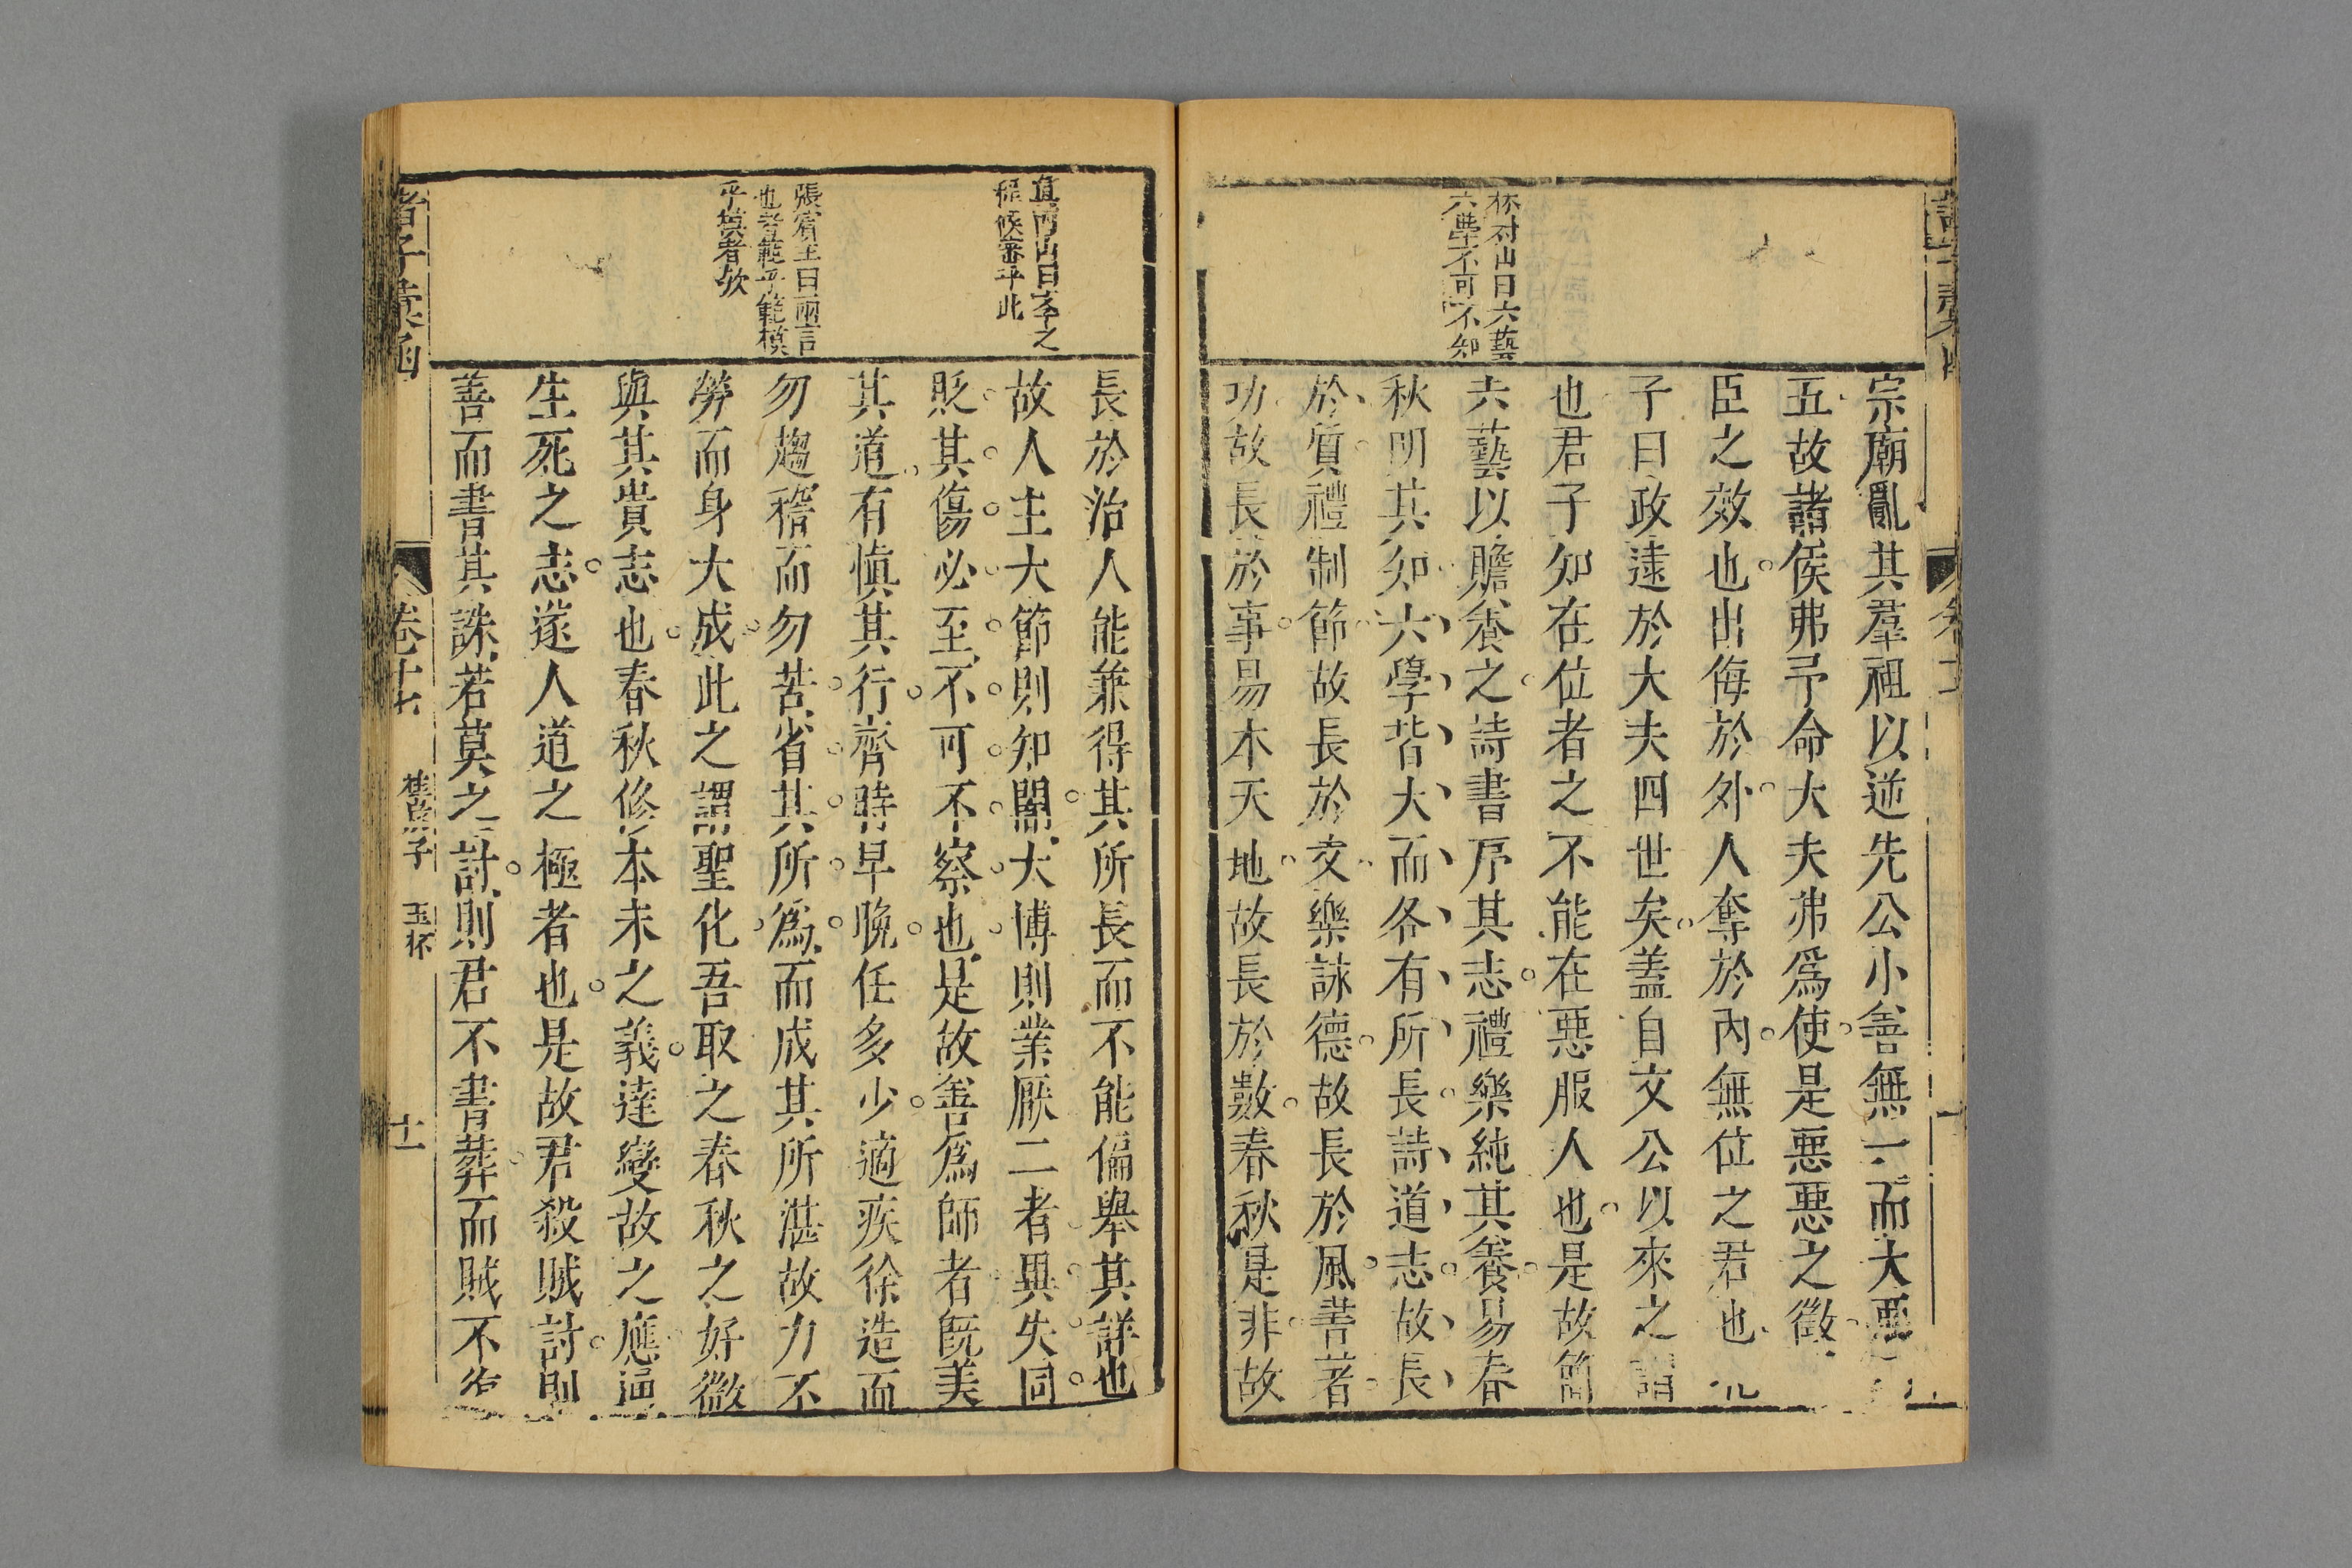 宗廟亂其羣祖以逆先公小善無一而大惡
五故諸侯弗予命大夫弗爲使是惡惡之徵
臣之效也出侮於外人奪於內無位之君也
子曰政逮於大夫四世矣蓋自文公以來之謂
也君子知在位者之不能在惡服人也是故簡
六藝以贍養之詩書序其志禮樂純其養易春
秋明其知六學皆大而各有所長詩道志故長
於質禮制節故長於文樂詠德故長於風書著
功故長於事易本天地故長於數春秋是非故
六藝
六學不可不知
長於治人能兼得其所長而不能偏舉其詳也
故人主大節則知闇大博則業厭二者異失同
貶其傷必至不可不察也是故善爲師者既美
其道有慎其行齊時早晚任多少適疾徐造而
勿趨稽而勿苦省其所爲而成其所湛故力不
勞而身大成此之謂聖化吾取之春秋之好微
與其貴志也春秋修本末之義達變故之應通
生死之志遂人道之極者也是故君殺賊討則
善而書其誅若莫之討則君不書葬而賊不復
程候審乎此
張賓王曰兩言
也者範乎範模
乎模者歟
諸子彙函
卷十七
桂巖子
玉杯
十一